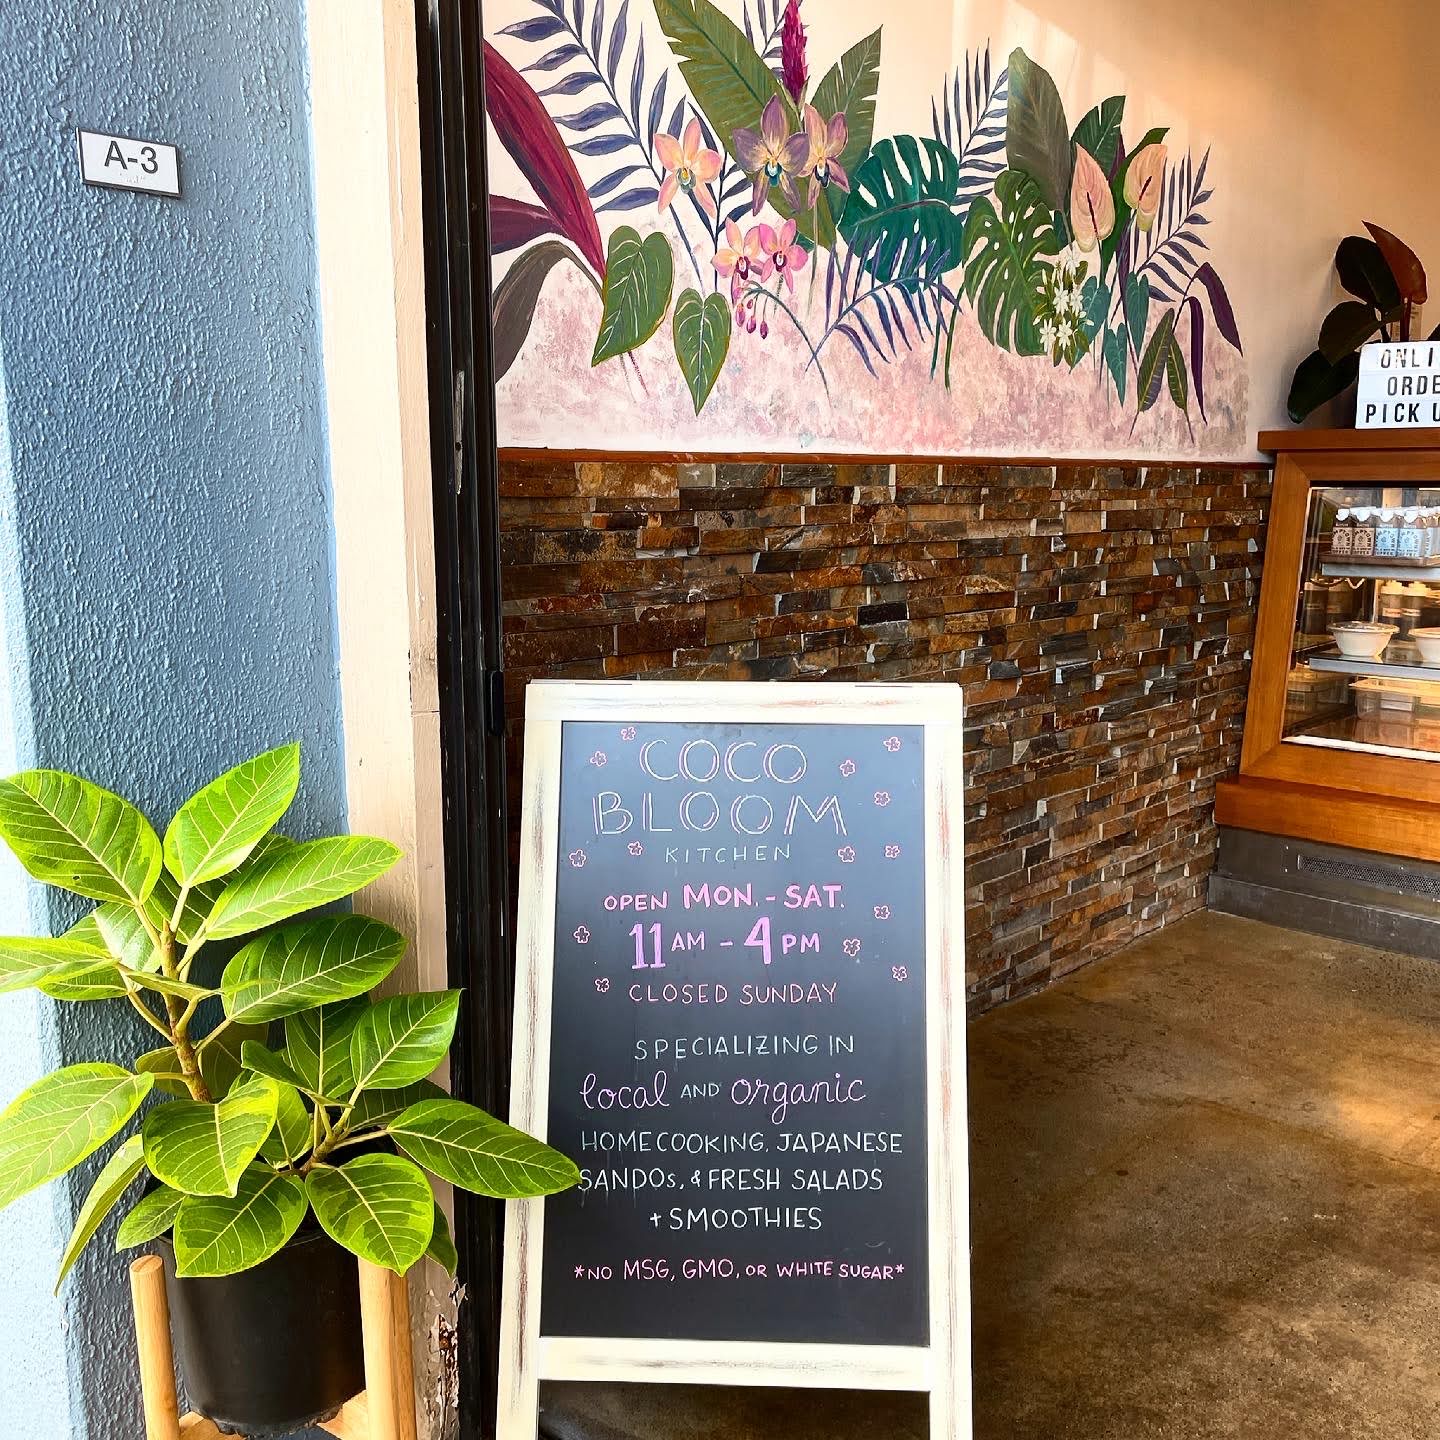 A-3
ONLI
ORDE
PICK U
COCO
BLOOM
KITCHEN
OPEN MON. - SAT.
11 AM - 4 PM
CLOSED SUNDAY
SPECIALIZING IN
local AND organic
HOMECOOKING, JAPANESE
SANDOs, & FRESH SALADS
+ SMOOTHIES
*NO MSG, GMO, OR WHITE SUGAR*